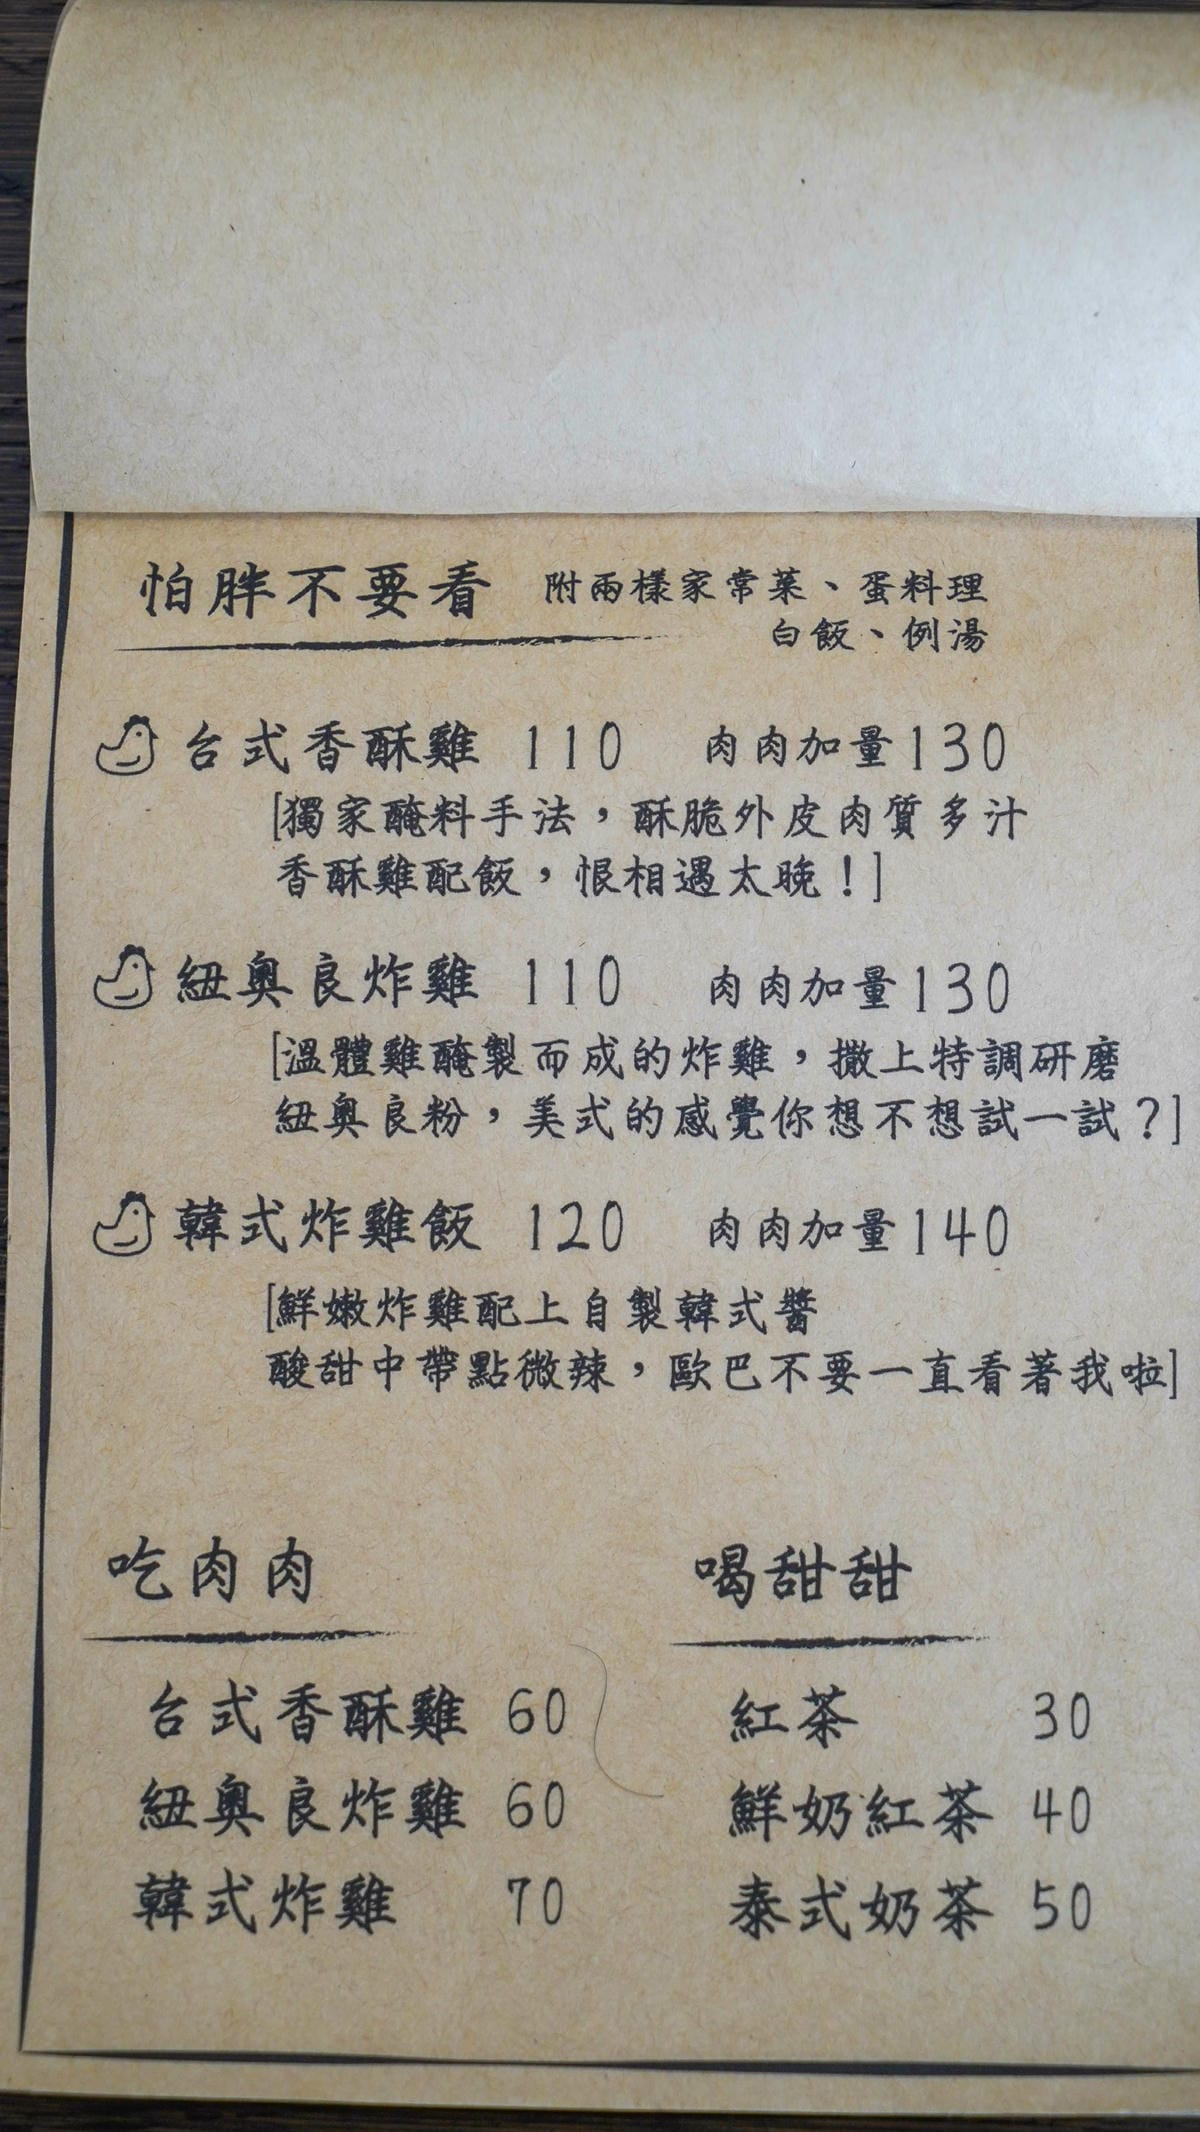 怕胖不要看 附兩樣家常菜、蛋料理
白飯、例湯
台式香酥雞 110 肉肉加量130
[獨家醃料手法，酥脆外皮肉質多汁
香酥雞配飯，恨相遇太晚！]
紐奧良炸雞 110 肉肉加量130
[溫體雞醃製而成的炸雞，撒上特調研磨
紐奧良粉，美式的感覺你想不想試一試？]
韓式炸雞飯 120 肉肉加量140
[鮮嫩炸雞配上自製韓式醬
酸甜中帶點微辣，歐巴不要一直看著我啦]
吃肉肉
台式香酥雞 60
紐奧良炸雞 60
韓式炸雞 70
喝甜甜
紅茶 30
鮮奶紅茶 40
泰式奶茶 50